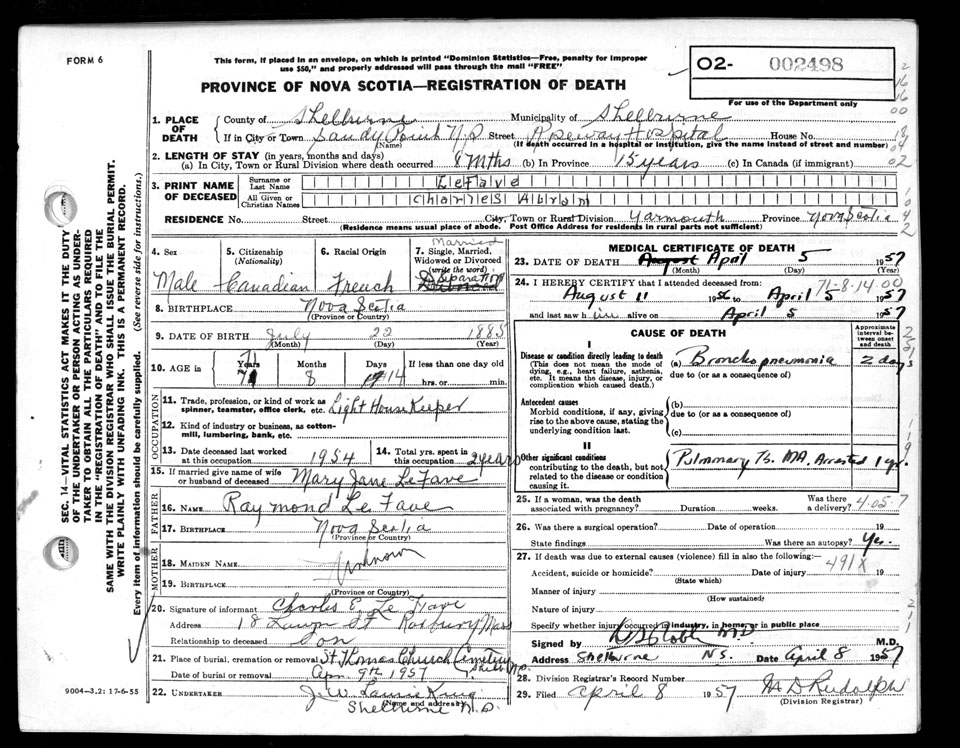 FORM 6
This form, if placed in an envelope, on which is printed "Dominion Statistics—Free, penalty for improper
use $50," and properly addressed will pass through the mail "FREE"
PROVINCE OF NOVA SCOTIA—REGISTRATION OF DEATH
O2- 002498
For use of the Department only
1. PLACE OF DEATH
County of Shelburne Municipality of Shelburne
If in City or Town Sandy Point N.S. Street Hospital House No.
(Name) (If death occurred in a hospital or institution, give the name instead of street and number)
2. LENGTH OF STAY (in years, months and days)
(a) In City, Town or Rural Division where death occurred 8 Mths (b) In Province 15 years (c) In Canada (if immigrant)
3. PRINT NAME OF DECEASED
Surname or Last Name LeFave
All Given or Christian Names Charles Abram
RESIDENCE No. Street City, Town or Rural Division Yarmouth Province Nova Scotia
(Residence means usual place of abode. Post Office Address for residents in rural parts not sufficient)
4. Sex Male
5. Citizenship (Nationality) Canadian
6. Racial Origin French
7. Single, Married, Widowed or Divorced (write the word) Married Separation
8. BIRTHPLACE Nova Scotia
(Province or Country)
9. DATE OF BIRTH July 22 1885
(Month) (Day) (Year)
10. AGE in Years Months Days If less than one day old
71 8 14 hrs. or min.
OCCUPATION
11. Trade, profession, or kind of work as spinner, teamster, office clerk, etc. Light House Keeper
12. Kind of industry or business, as cotton-mill, lumbering, bank, etc.
13. Date deceased last worked at this occupation 1954
14. Total yrs. spent in this occupation 2 years
15. If married give name of wife or husband of deceased Mary Jane LeFave
FATHER
16. NAME Raymond Le Fave
17. BIRTHPLACE Nova Scotia
(Province or Country)
MOTHER
18. MAIDEN NAME Unknown
19. BIRTHPLACE
(Province or Country)
20. Signature of informant Charles E. Le Fave
Address 18 Lawn St Roxbury Mass
Relationship to deceased Son
21. Place of burial, cremation or removal St Thomas Church Cemetery
Date of burial or removal Apr. 9th 1957
22. UNDERTAKER
(Name and address)
Shelburne N.S.
MEDICAL CERTIFICATE OF DEATH
23. DATE OF DEATH August April 5 1957
(Month) (Day) (Year)
24. I HEREBY CERTIFY that I attended deceased from: 71-8-14-00
August 11 1956 to April 5 1957
and last saw him alive on April 5 1957
CAUSE OF DEATH
Approximate interval between onset and death
I
Disease or condition directly leading to death
(This does not mean the mode of dying, e.g., heart failure, asthenia, etc. It means the disease, injury, or complication which caused death.)
(a) Bronchopneumonia 2 days
due to (or as a consequence of)
Antecedent causes
Morbid conditions, if any, giving rise to the above cause, stating the underlying condition last.
(b)
due to (or as a consequence of)
(c)
II
Other significant conditions
contributing to the death, but not related to the disease or condition causing it.
Pulmonary Tb. MA, Arrested 1 yr.
25. If a woman, was the death associated with pregnancy? Duration weeks. Was there a delivery? 4-05-7
26. Was there a surgical operation? Date of operation 19
State findings Was there an autopsy? Yes.
27. If death was due to external causes (violence) fill in also the following:—
Accident, suicide or homicide? Date of injury 19
491X
(State which)
Manner of injury
(How sustained)
Nature of injury
Specify whether injury occurred in industry, in home, or in public place
Signed by M.D.
Address Shelburne N.S. Date April 8 1957
28. Division Registrar's Record Number
29. Filed April 8 1957 M D Rudolph
(Division Registrar)
SEC. 14—VITAL STATISTICS ACT MAKES IT THE DUTY
OF THE UNDERTAKER OR PERSON ACTING AS UNDER-
TAKER TO OBTAIN ALL THE PARTICULARS REQUIRED
IN THE "REGISTRATION OF DEATH" AND TO FILE THE
SAME WITH THE DIVISION REGISTRAR WHO SHALL ISSUE THE BURIAL PERMIT.
WRITE PLAINLY WITH UNFADING INK. THIS IS A PERMANENT RECORD.
Every item of information should be carefully supplied. (See reverse side for instructions.)
9004—3.2: 17-6-55